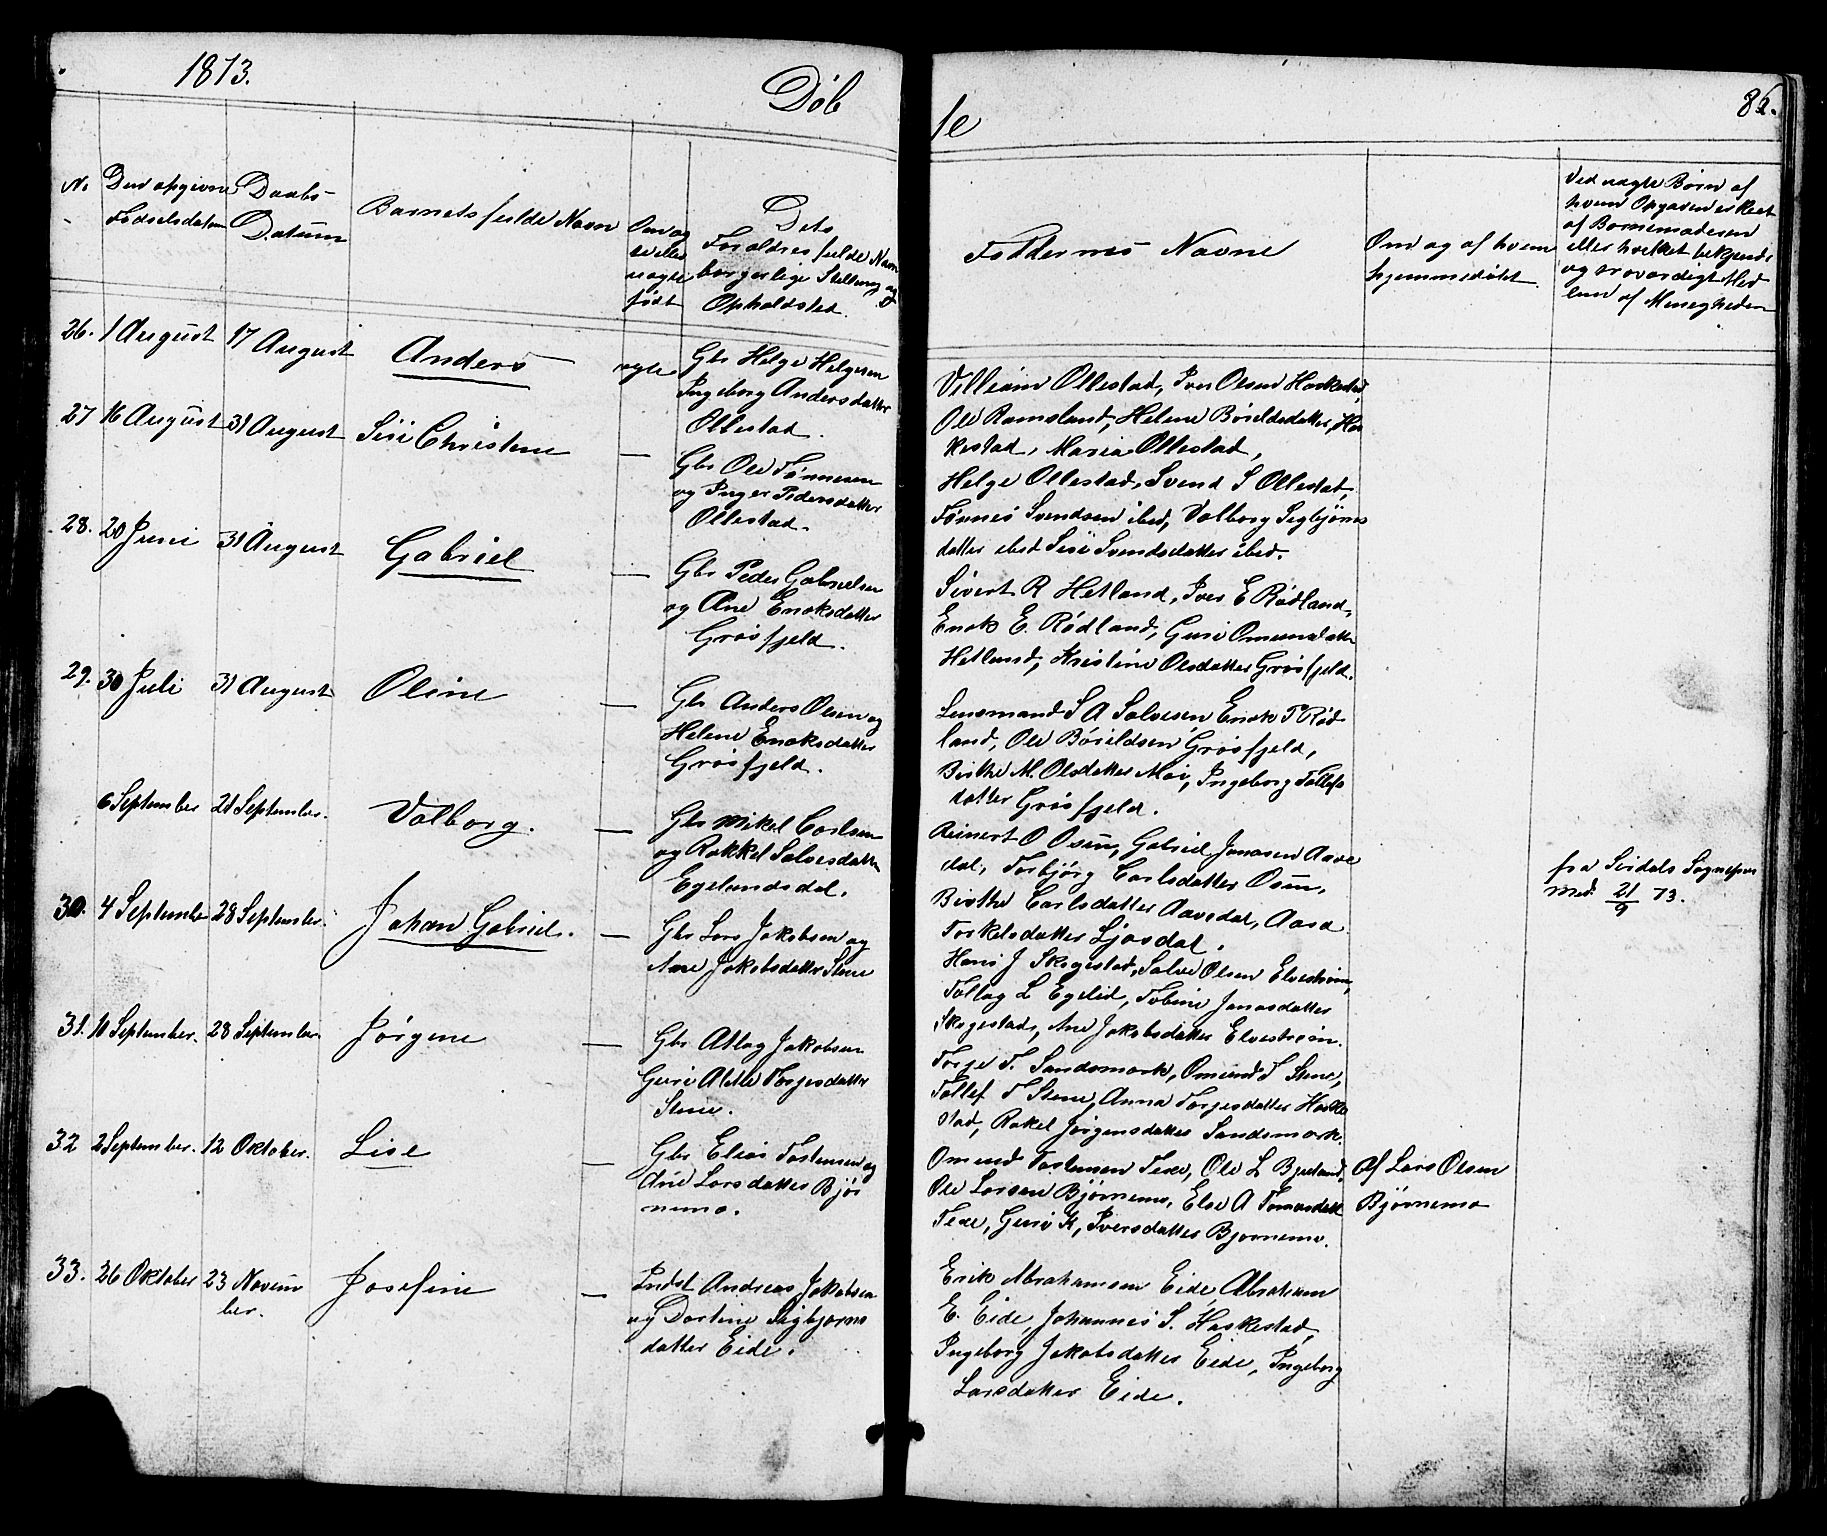 1873.
Døb
te
86.
No
Den opgivne
Fødselsdatum
Daabs-
Datum
Barnets fulde Navn
Om eg
te eller
uegte
født
Dets
Foraldres fulde Navn
borgerlige Stilling og
Opholdsted.
Faddernes Navne
Om og af hvem
hjemmedøbt.
Ved uegte Børn af
hvem Opgaven er skeet
af Barnemoderen
eller hvilket bekjendt
og troværdigt Med
lem af Menigheden
26. 1 August 17 August Anders egte
Gbr Helge Helgesen
Ingeborg Andersdatter
Ollestad.
Villiam Ollestad, Iver Olsen Haskestad,
Ole Ramsland, Helene Bøieldsdatter Has
kestad, Maria Ollestad,
27 16 August 31 August Siri Christene —
Gbr Ole Tønnesen
og Inger Pedersdatter
Ollestad.
Helge Ollestad, Svend S Ollestad,
Tønnes Svendsen ibed, Valborg Segbjørns
datter ibed Siri Svendsdatter ibed.
28. 20 Juni 31 August Gabriel —
Gbr Peder Gabrielsen
og Ane Enoksdatter
Grøsfjeld.
Sivert R Hetland, Iver E Rødland,
Enok E. Rødland, Guri Omundsdatter
Hetland, Kristine Olsdatter Grøsfjeld.
29. 30 Juli 31 August Oline —
Gbr Anders Olsen og
Helene Enoksdatter
Grøsfjeld.
Lensmand S A Salvesen Enok T Rød
land, Ole Bøieldsen Grøsfjeld,
Birthe M. Olsdatter Moi, Ingeborg Tollefs
datter Grøsfjeld.
6 September 21 September. Valborg. —
Gbr Mikel Carlsen
og Rakkel Salvesdatter
Egelandsdal.
Reinert O Osen, Gabriel Jonasen Aave
dal, Torbjørg Carlsdatter Osen,
Birthe Carlsdatter Aavedal, Aasa
Torkelsdatter Ljosdal.
fra Sirdals Sognepræst
med. 21/9 73.
30. 4 September 28 September. Johan Gabriel. —
Gbr Lars Jakobsen og
Ane Jakobsdatter Stene
Hans J Skogestad, Salve Olsen Elvestrøm,
Tollag L Egelid, Tobine Jonasdatter
Skogestad, Ane Jakobsdatter Elvestrøm.
31. 10 September. 28 September. Jørgine —
Gbr Atlag Jakobsen
Guri Alette Torgesdatter
Stene.
Torge T. Sandsmark, Omund T Stene,
Tollef T Stene, Anna Torgesdatter Haske
stad, Rakel Jørgensdatter Sandsmark.
32 2 September. 12 Oktober. Lise —
Gbr Elias Torstensen og
Ane Larsdatter Bjør
nemo.
Omund Torstensen Texe, Ole L Bjueland,
Ole Larsen Bjørnemo, Else A Tomasdatt
Texe, Guri K, Iversdatter Bjørnemo.
Af Lars Olsen
Bjørnemo
33. 26 Oktober 23 Novem
ber.
Josefine —
Indst Andreas Jakobsen
og Dortine Sigbjørns
datter Eide.
Erik Abrahamsen Eide, Abraham
E. Eide, Johannes S. Haskestad,
Ingeborg Jakobsdatter Eide, Ingeborg
Larsdatter Eide.